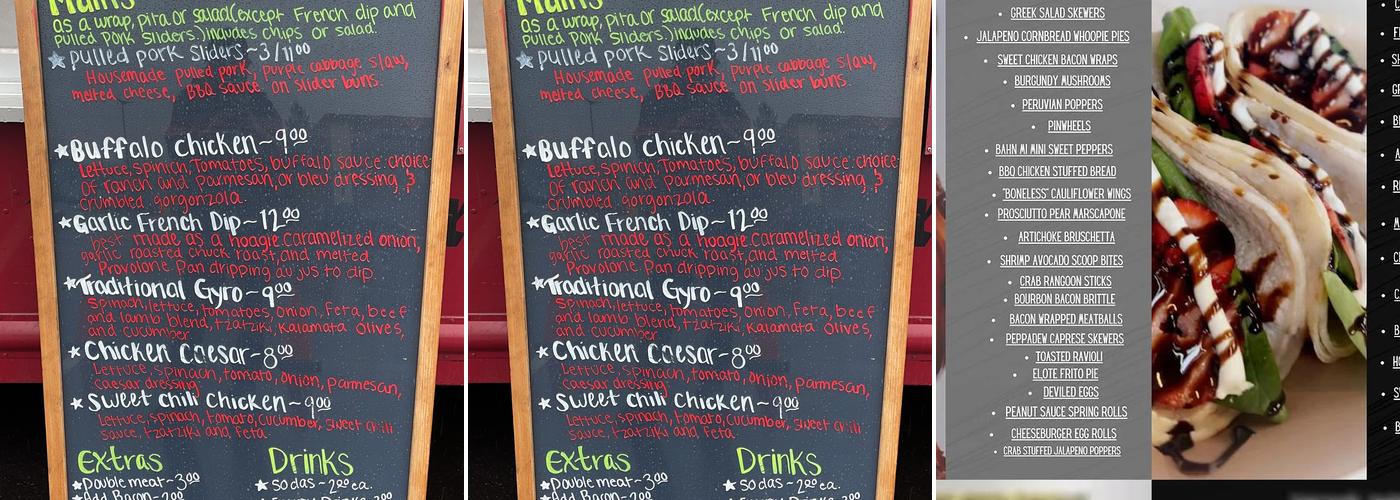 Mains
as a wrap, pita or salad(except French dip and
pulled pork sliders.)includes chips or salad.
pulled pork Sliders~3/1100
Housemade pulled pork, purple cabbage slaw,
melted cheese, BBQ sauce on slider buns.
Buffalo chicken~900
Lettuce,spinich,Tomatoes, buffalo sauce choice
of ranch and parmesan,or bleu dressing,&
crumbled gorgonzola.
Garlic French Dip~1200
best made as a hoagie.caramelized onion,
garlic roasted chuck roast,and melted
Provolone. Pan dripping au'jus to dip.
Traditional Gyro~900
Spinach,lettuce,tomatoes,onion,Feta,beef
and lamb blend,tzatziki,kalamata olives,
and cucumber
Chicken Caesar~800
Lettuce,spinach,tomato,onion,parmesan,
caesar dressing
Sweet Chili Chicken~900
Lettuce,spinach,tomato,cucumber,sweet chili
sauce,tzatziki and feta
Extras
Double meat~300
Add Bacon~200
Drinks
sodas~200ea.
Mains
as a wrap, pita or salad(except French dip and
pulled pork sliders.)includes chips or salad.
pulled pork Sliders~3/1100
Housemade pulled pork, purple cabbage slaw,
melted cheese, BBQ sauce on slider buns.
Buffalo chicken~900
Lettuce,spinich,Tomatoes, buffalo sauce choice
of ranch and parmesan,or bleu dressing,&
crumbled gorgonzola.
Garlic French Dip~1200
best made as a hoagie.caramelized onion,
garlic roasted chuck roast,and melted
Provolone. Pan dripping au'jus to dip.
Traditional Gyro~900
Spinach,lettuce,tomatoes,onion,Feta,beef
and lamb blend,tzatziki,kalamata olives,
and cucumber
Chicken Caesar~800
Lettuce,spinach,tomato,onion,parmesan,
caesar dressing
Sweet Chili Chicken~900
Lettuce,spinach,tomato,cucumber,sweet chili
sauce,tzatziki and feta
Extras
Double meat~300
Add Bacon~200
Drinks
sodas~200ea.
GREEK SALAD SKEWERS
JALAPENO CORNBREAD WHOOPIE PIES
SWEET CHICKEN BACON WRAPS
BURGUNDY MUSHROOMS
PERUVIAN POPPERS
PINWHEELS
BAHN MI MINI SWEET PEPPERS
BBQ CHICKEN STUFFED BREAD
"BONELESS" CAULIFLOWER WINGS
PROSCIUTTO PEAR MARSCAPONE
ARTICHOKE BRUSCHETTA
SHRIMP AVOCADO SCOOP BITES
CRAB RANGOON STICKS
BOURBON BACON BRITTLE
BACON WRAPPED MEATBALLS
PEPPADEW CAPRESE SKEWERS
TOASTED RAVIOLI
ELOTE FRITO PIE
DEVILED EGGS
PEANUT SAUCE SPRING ROLLS
CHEESEBURGER EGG ROLLS
CRAB STUFFED JALAPENO POPPERS